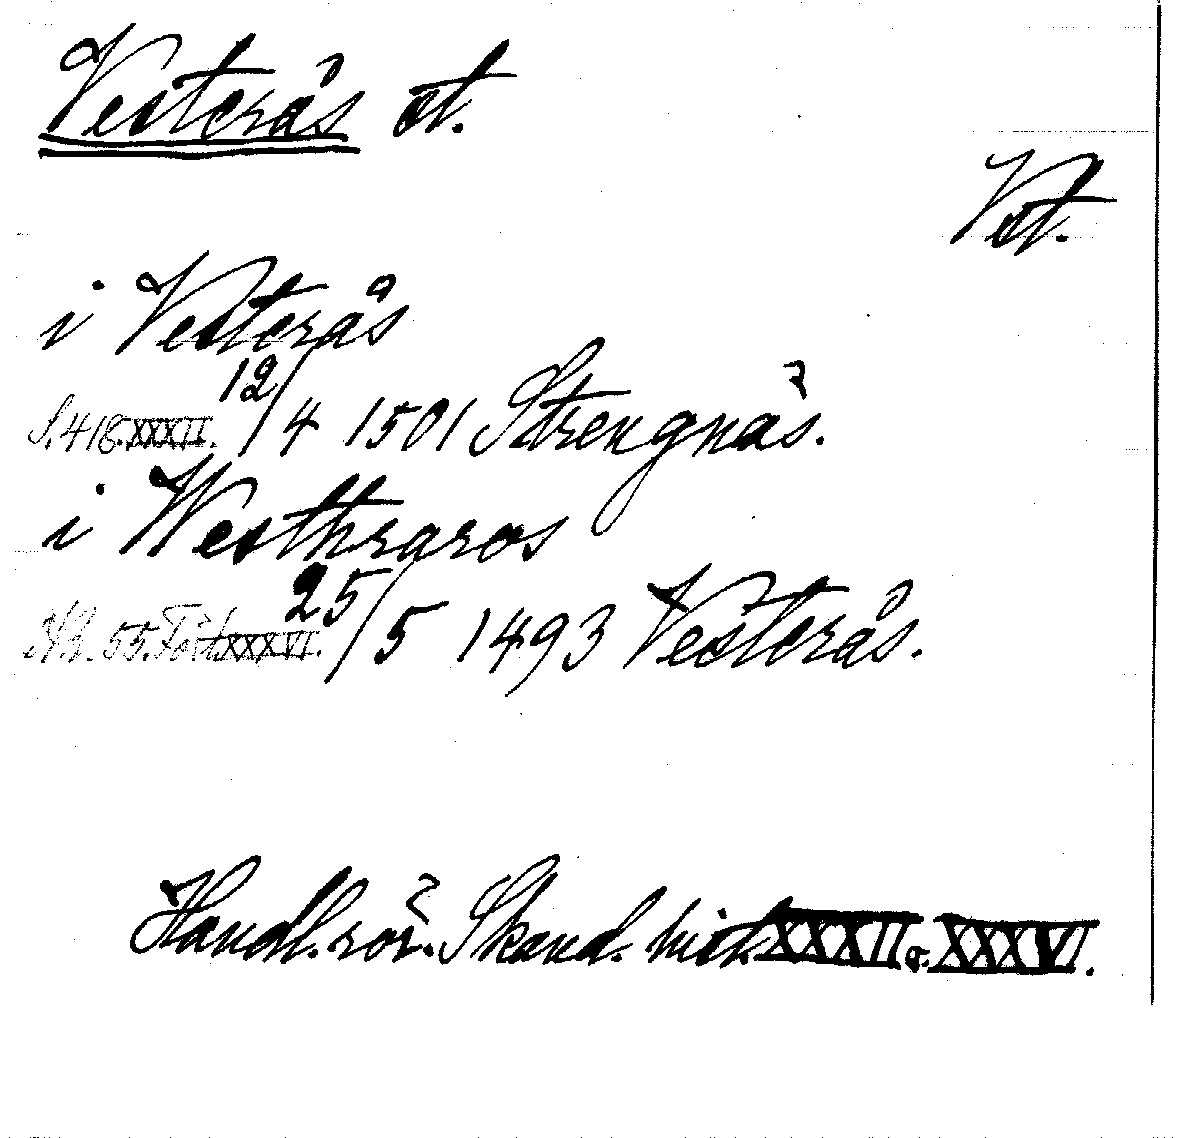 Vesterås st.
Vst.
i Vesterås
S. 418. XXXII. 12/4 1501 Strengnäs.
i Westhraros
55. XXXVI. 25/5 1493 Vesterås.
Handl. rör. Skand. hist. XXXII o. XXXVI.